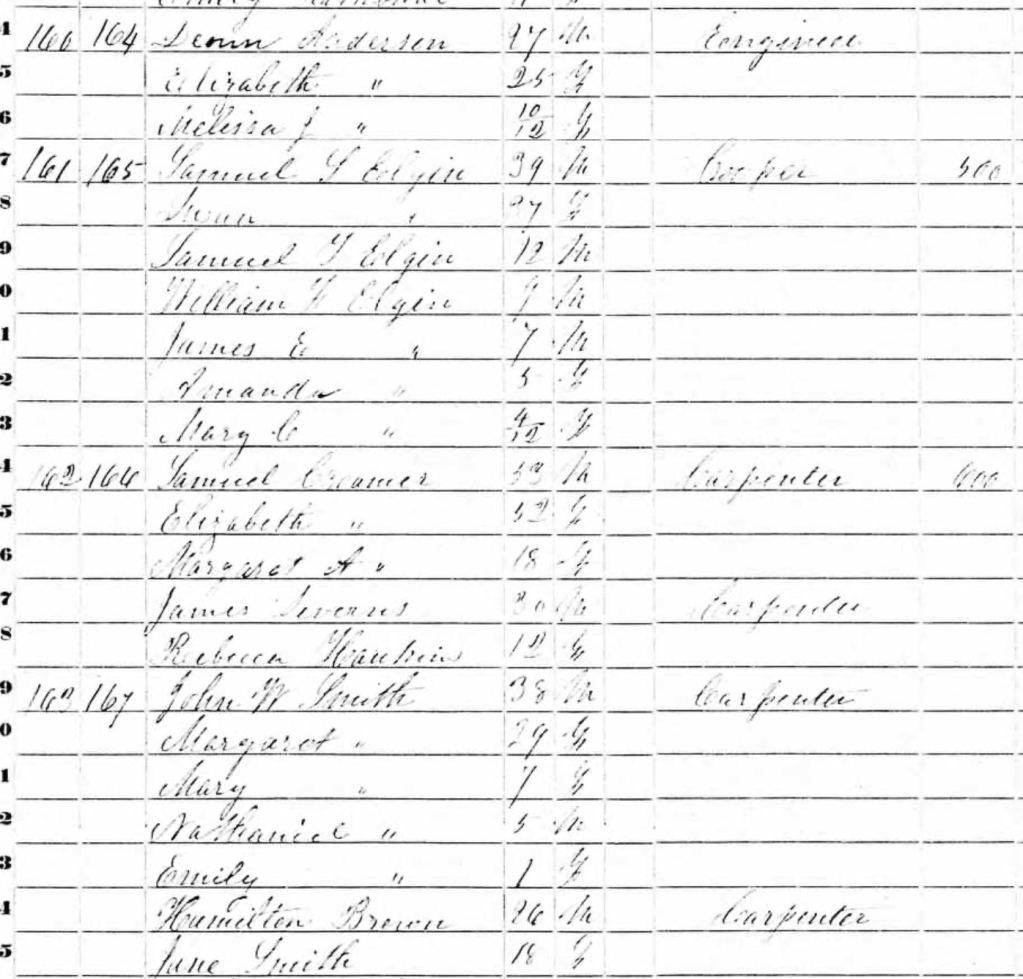 4 160 164 Anderson 27 M Engineer
5 Elizabeth " 25 F
6 Melissa J " 10/12 F
7 161 165 Samuel S Elgin 39 M Cooper 500
8 " 27 F
9 Samuel T Elgin 12 M
0 William H Elgin 9 M
1 James E " 7 M
2 Amanda " 5 F
3 Mary C " 4/12 F
4 162 166 Samuel Creamer 53 M Carpenter 600
5 Elizabeth " 52 F
6 Margaret A " 18 F
7 James 30 M Carpenter
8 Rebecca Hawkins 12 F
9 163 167 John W Smith 38 M Carpenter
0 Margaret " 29 F
1 Mary " 7 F
2 Nathaniel " 5 M
3 Emily " 1 F
4 Hamilton Brown 26 M Carpenter
5 Jane Smith 18 F